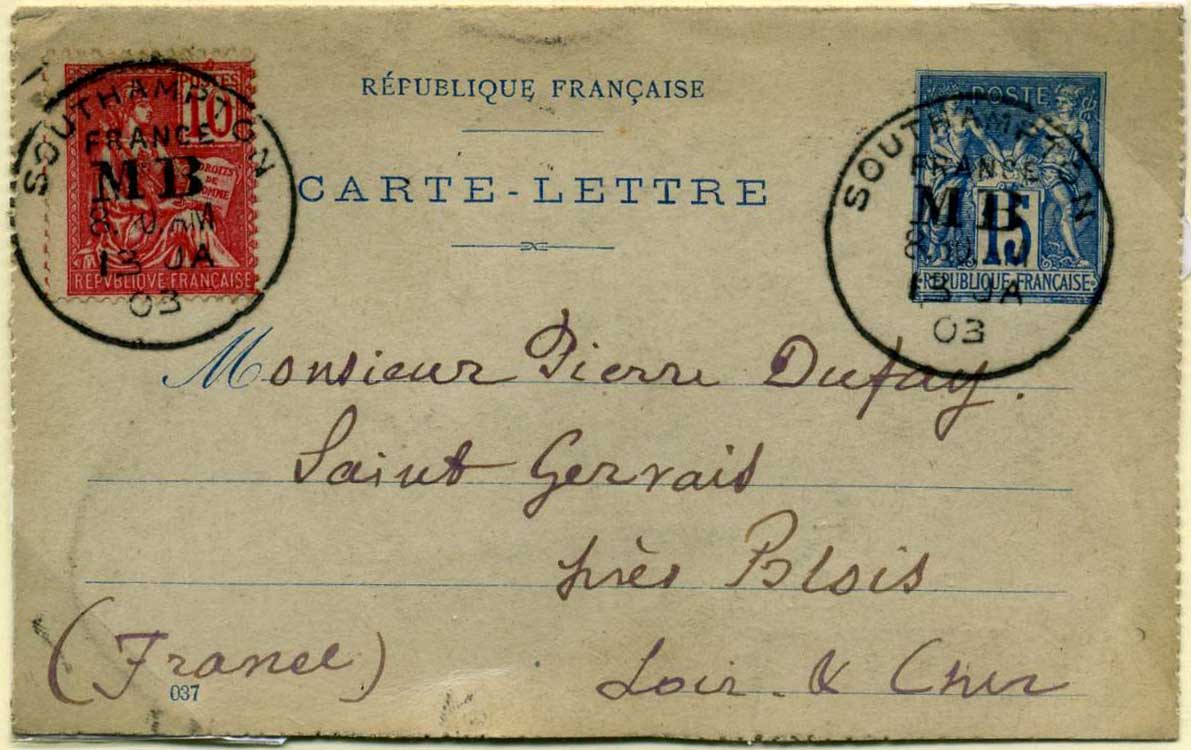 RÉPUBLIQUE FRANÇAISE
CARTE-LETTRE
POSTES
10
DROITS
DE
REPVBLIQVE FRANÇAISE
SOUTHAMPTON
FRANCE
MB
13 JA
03
POSTE
15
REPUBLIQUE FRANÇAISE
SOUTHAMPTON
FRANCE
MB
13 JA
03
Monsieur Pierre Dufay.
Saint Gervais
près Blois
(France) Loir & Cher
037